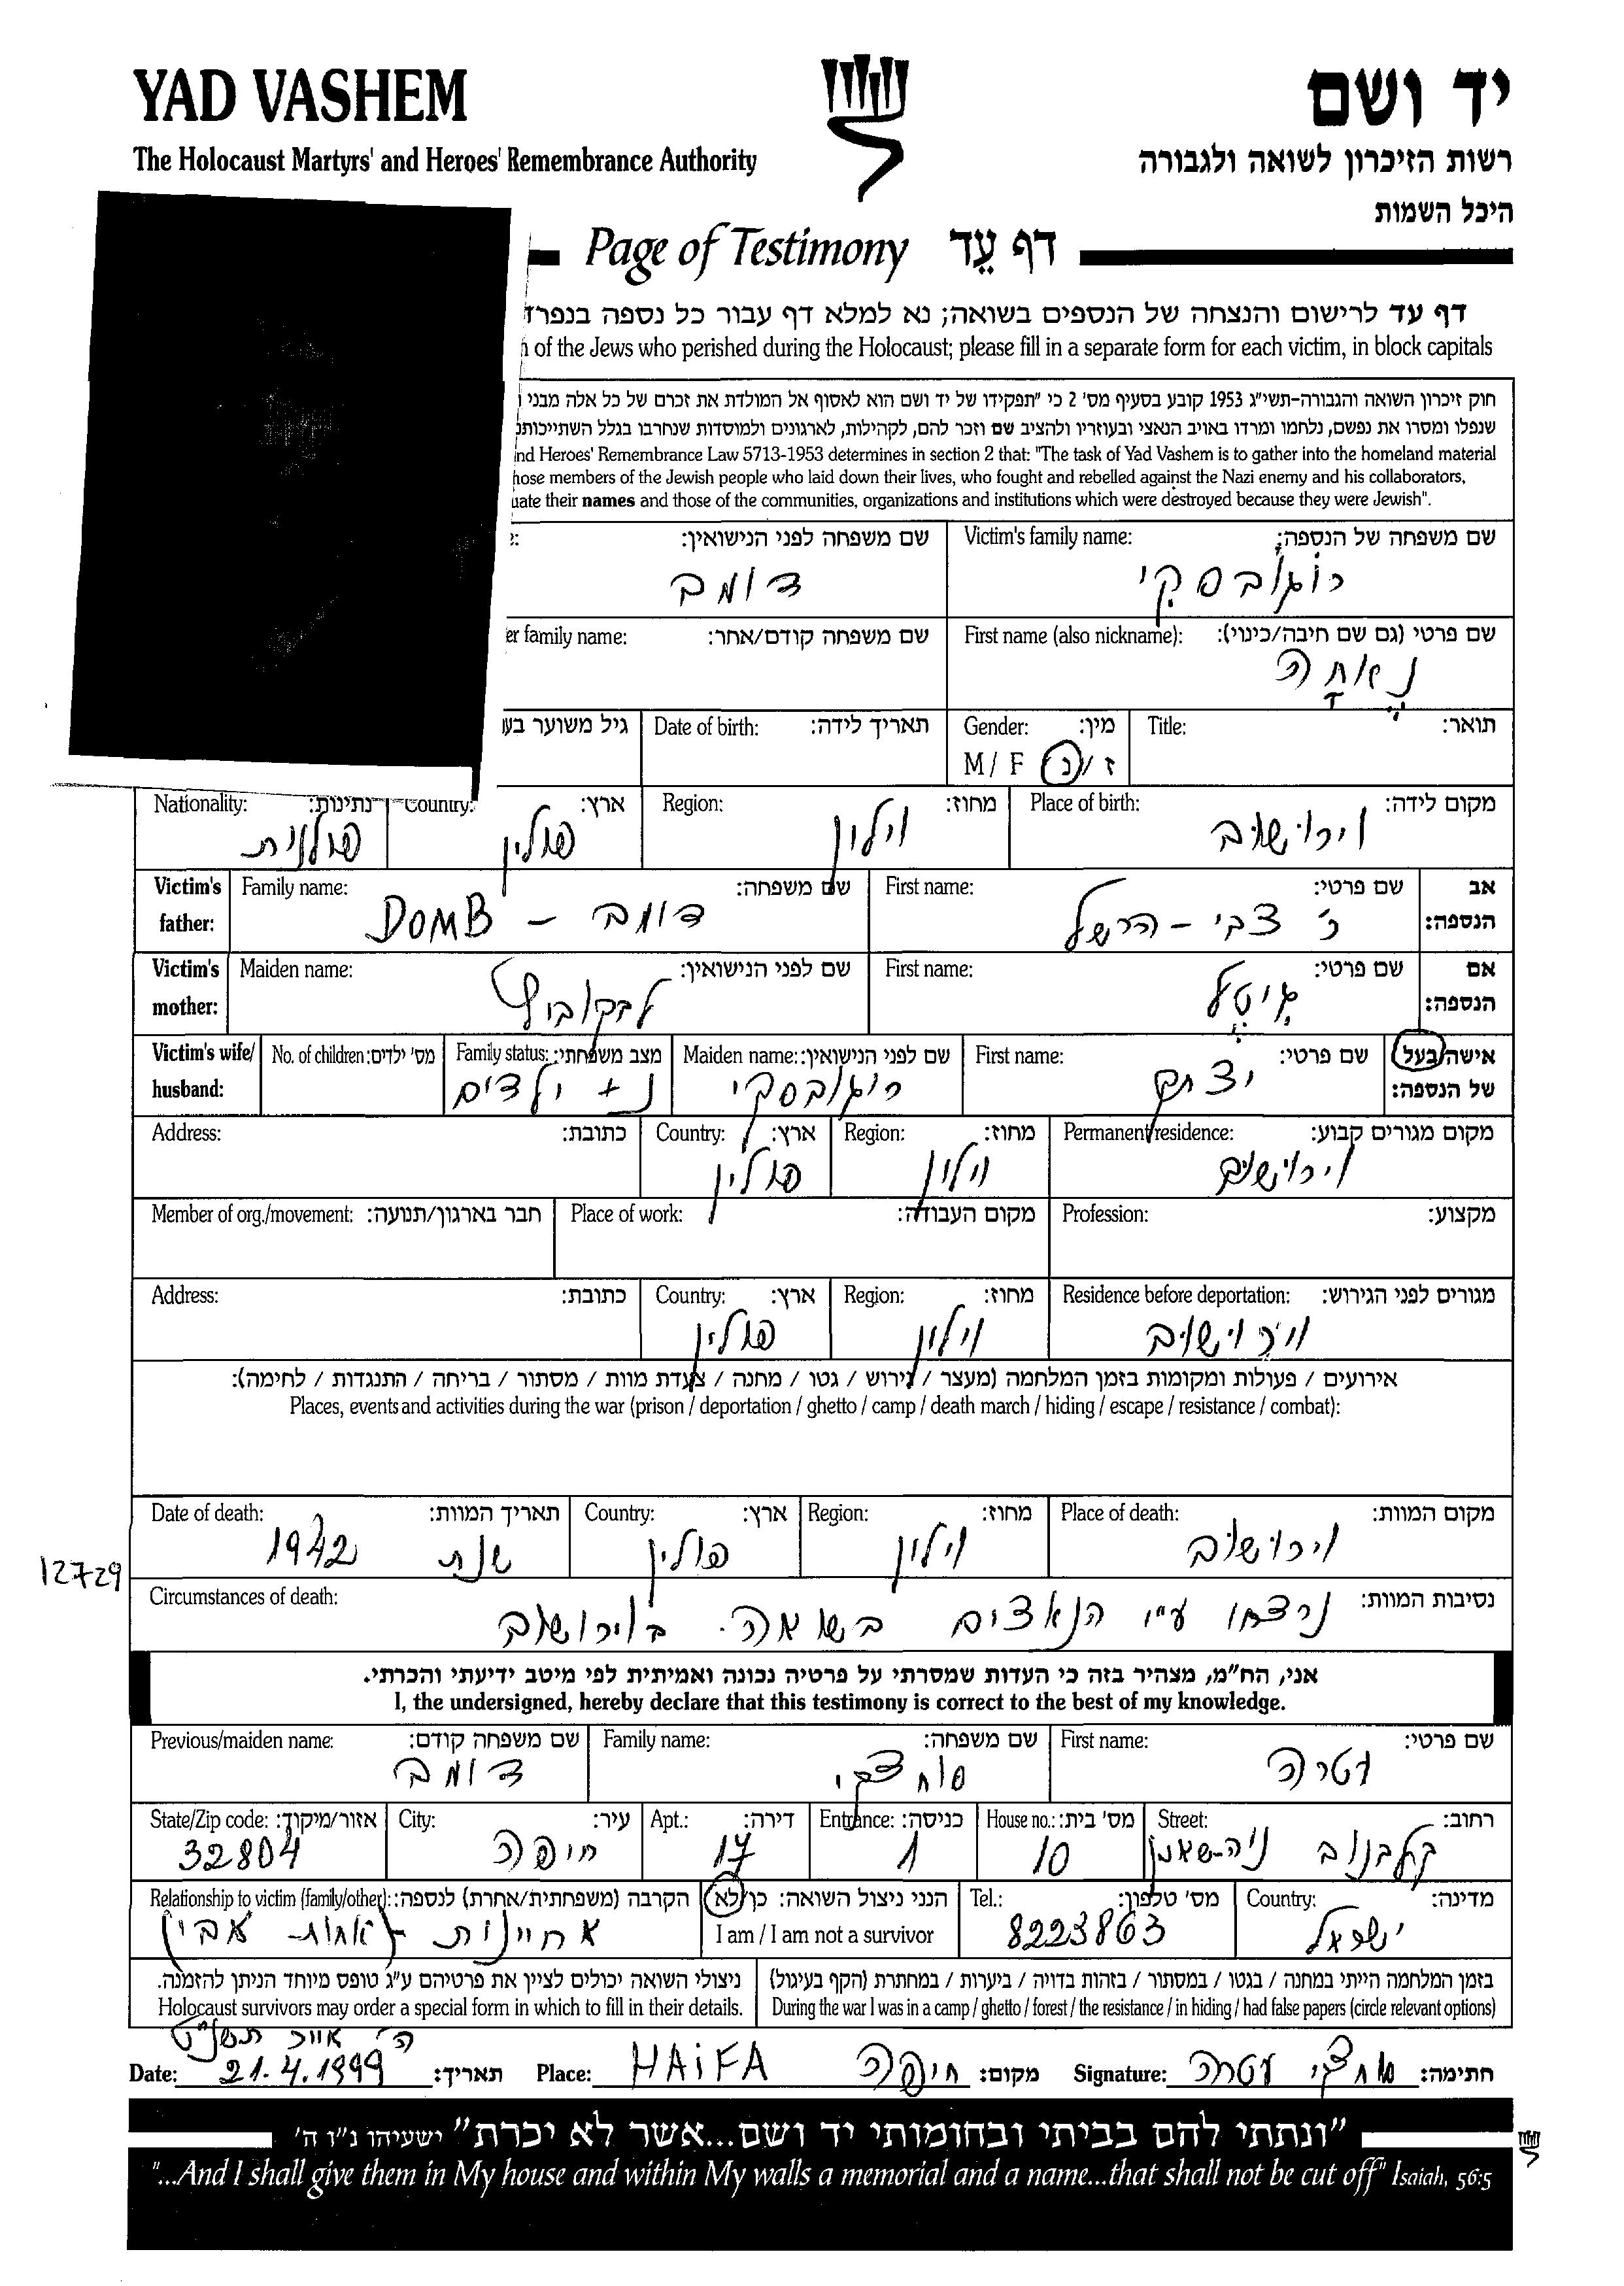 YAD VASHEM
יד ושם
The Holocaust Martyrs' and Heroes' Remembrance Authority
רשות הזיכרון לשואה ולגבורה
היכל השמות
Page of Testimony דף עֵד
דף עד לרישום והנצחה של הנספים בשואה; נא למלא דף עבור כל נספה בנפרד
of the Jews who perished during the Holocaust; please fill in a separate form for each victim, in block capitals
חוק זיכרון השואה והגבורה-תשי״ג 1953 קובע בסעיף מס' 2 כי "תפקידו של יד ושם הוא לאסוף אל המולדת את זכרם של כל אלה מבני
שנפלו ומסרו את נפשם, נלחמו ומרדו באויב הנאצי ובעוזריו ולהציב שם וזכר להם, לקהילות, לארגונים ולמוסדות שנחרבו בגלל השתייכותם
nd Heroes' Remembrance Law 5713-1953 determines in section 2 that: "The task of Yad Vashem is to gather into the homeland material
hose members of the Jewish people who laid down their lives, who fought and rebelled against the Nazi enemy and his collaborators,
uate their names and those of the communities, organizations and institutions which were destroyed because they were Jewish".
שם משפחה של הנספה: Victim's family name: שם משפחה לפני הנישואין:
רוגובסקי דומב
שם פרטי (גם שם חיבה/כינוי): First name (also nickname): שם משפחה קודם/אחר: er family name:
תואר: Title: מין: Gender: תאריך לידה: Date of birth: גיל משוער בעת
ז/נ M / F
מקום לידה: Place of birth: מחוז: Region: ארץ: Country: נתינות: Nationality:
וירושוב וילון פולין פולנית
אב הנספה: שם פרטי: First name: שם משפחה: Family name: Victim's father:
ר' צבי - הרשל דומב - DOMB
אם הנספה: שם פרטי: First name: שם לפני הנישואין: Maiden name: Victim's mother:
גיטל
אישה/בעל של הנספה: שם פרטי: First name: שם לפני הנישואין: Maiden name: מצב משפחתי: Family status: מס' ילדים: No. of children: Victim's wife/ husband:
יצחק רוגובסקי נ + ילדים
מקום מגורים קבוע: Permanent residence: מחוז: Region: ארץ: Country: כתובת: Address:
וירושוב וילון פולין
מקצוע: Profession: מקום העבודה: Place of work: חבר בארגון/תנועה: Member of org./movement:
מגורים לפני הגירוש: Residence before deportation: מחוז: Region: ארץ: Country: כתובת: Address:
וירושוב וילון פולין
אירועים / פעולות ומקומות בזמן המלחמה (מעצר / גירוש / גטו / מחנה / צעדת מוות / מסתור / בריחה / התנגדות / לחימה):
Places, events and activities during the war (prison / deportation / ghetto / camp / death march / hiding / escape / resistance / combat):
מקום המוות: Place of death: מחוז: Region: ארץ: Country: תאריך המוות: Date of death:
וירושוב וילון פולין שנת 1942
12729
נסיבות המוות: Circumstances of death:
נרצחו ע"י הנאצים בשואה. בוירושוב
אני, הח״מ, מצהיר בזה כי העדות שמסרתי על פרטיה נכונה ואמיתית לפי מיטב ידיעתי והכרתי.
I, the undersigned, hereby declare that this testimony is correct to the best of my knowledge.
שם פרטי: First name: שם משפחה: Family name: שם משפחה קודם: Previous/maiden name:
עטרה סוחצקי דומב
רחוב: Street: מס' בית: House no.: כניסה: Entrance: דירה: Apt.: עיר: City: אזור/מיקוד: State/Zip code:
נוה-שאנן 10 1 17 חיפה 32804
מדינה: Country: מס' טלפון: Tel.: הנני ניצול השואה: כן/לא I am / I am not a survivor הקרבה (משפחתית/אחרת) לנספה: Relationship to victim (family/other):
ישראל 8223863 אחיינית אחות אבי
בזמן המלחמה הייתי במחנה / בגטו / במסתור / בזהות בדויה / ביערות / במחתרת (הקף בעיגול)
During the war I was in a camp / ghetto / forest / the resistance / in hiding / had false papers (circle relevant options)
ניצולי השואה יכולים לציין את פרטיהם ע״ג טופס מיוחד הניתן להזמנה.
Holocaust survivors may order a special form in which to fill in their details.
ה' אייר תשנ"ט
חתימה: סוחצקי עטרה Signature: מקום: חיפה HAIFA Place: תאריך: 21.4.1999 Date:
"ונתתי להם בביתי ובחומותי יד ושם...אשר לא יכרת" ישעיהו נ״ו ה'
"...And I shall give them in My house and within My walls a memorial and a name...that shall not be cut off" Isaiah, 56:5